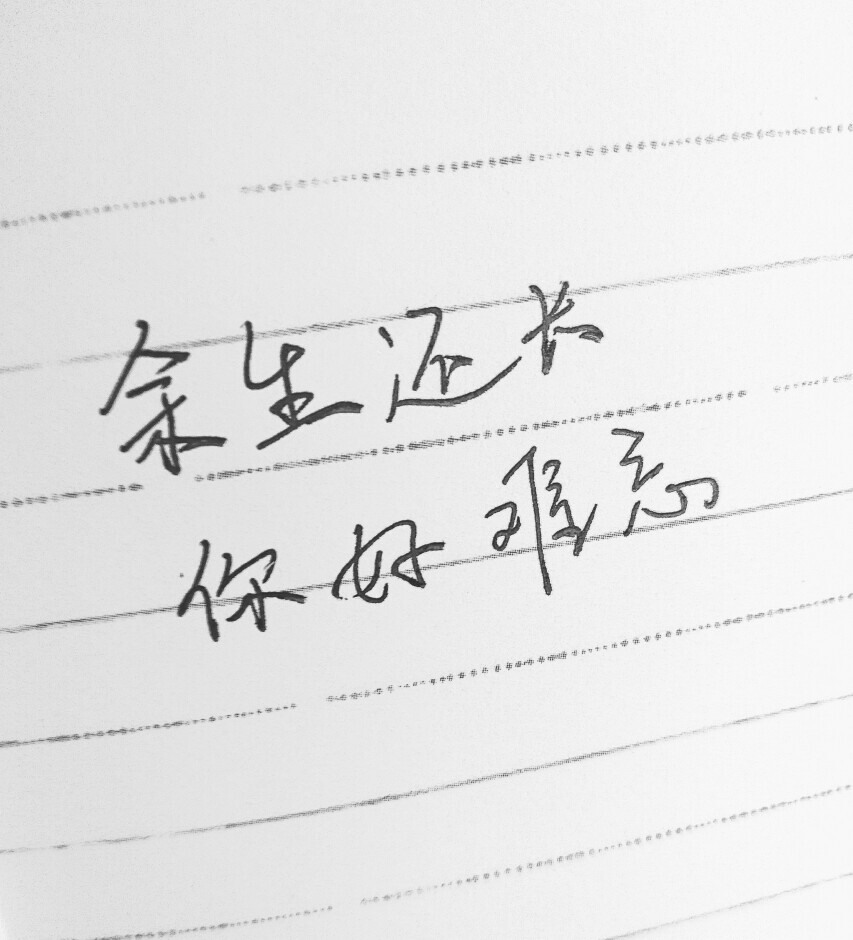 余生还长
你好难忘